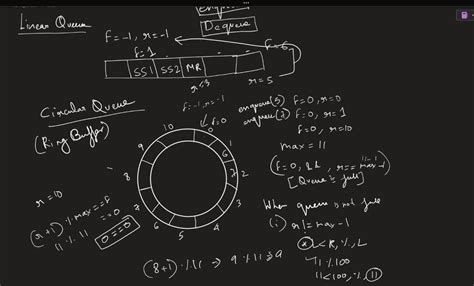 enqueue
Dequeue
Linear Queue
f=-1, r=-1
f=1
f=6
SS1 SS2 MR
r<3
r=5
Circular Queue
(Ring Buffer)
f=-1, r=-1
f=0
enqueue(5) f=0, r=0
enqueue(7) f=0, r=1
f=0, r=10
max = 11
[Queue is full]
10
0
1
2
3
4
5
6
7
8
9
r=10
(r+1) % max == f
11 % 11 == 0
0==0
When queue is not full
(i) r != max-1
<R, %, L
11 % 100
11<100, % (11)
(8+1) % 11 → 9 % 11 ⇒ 9